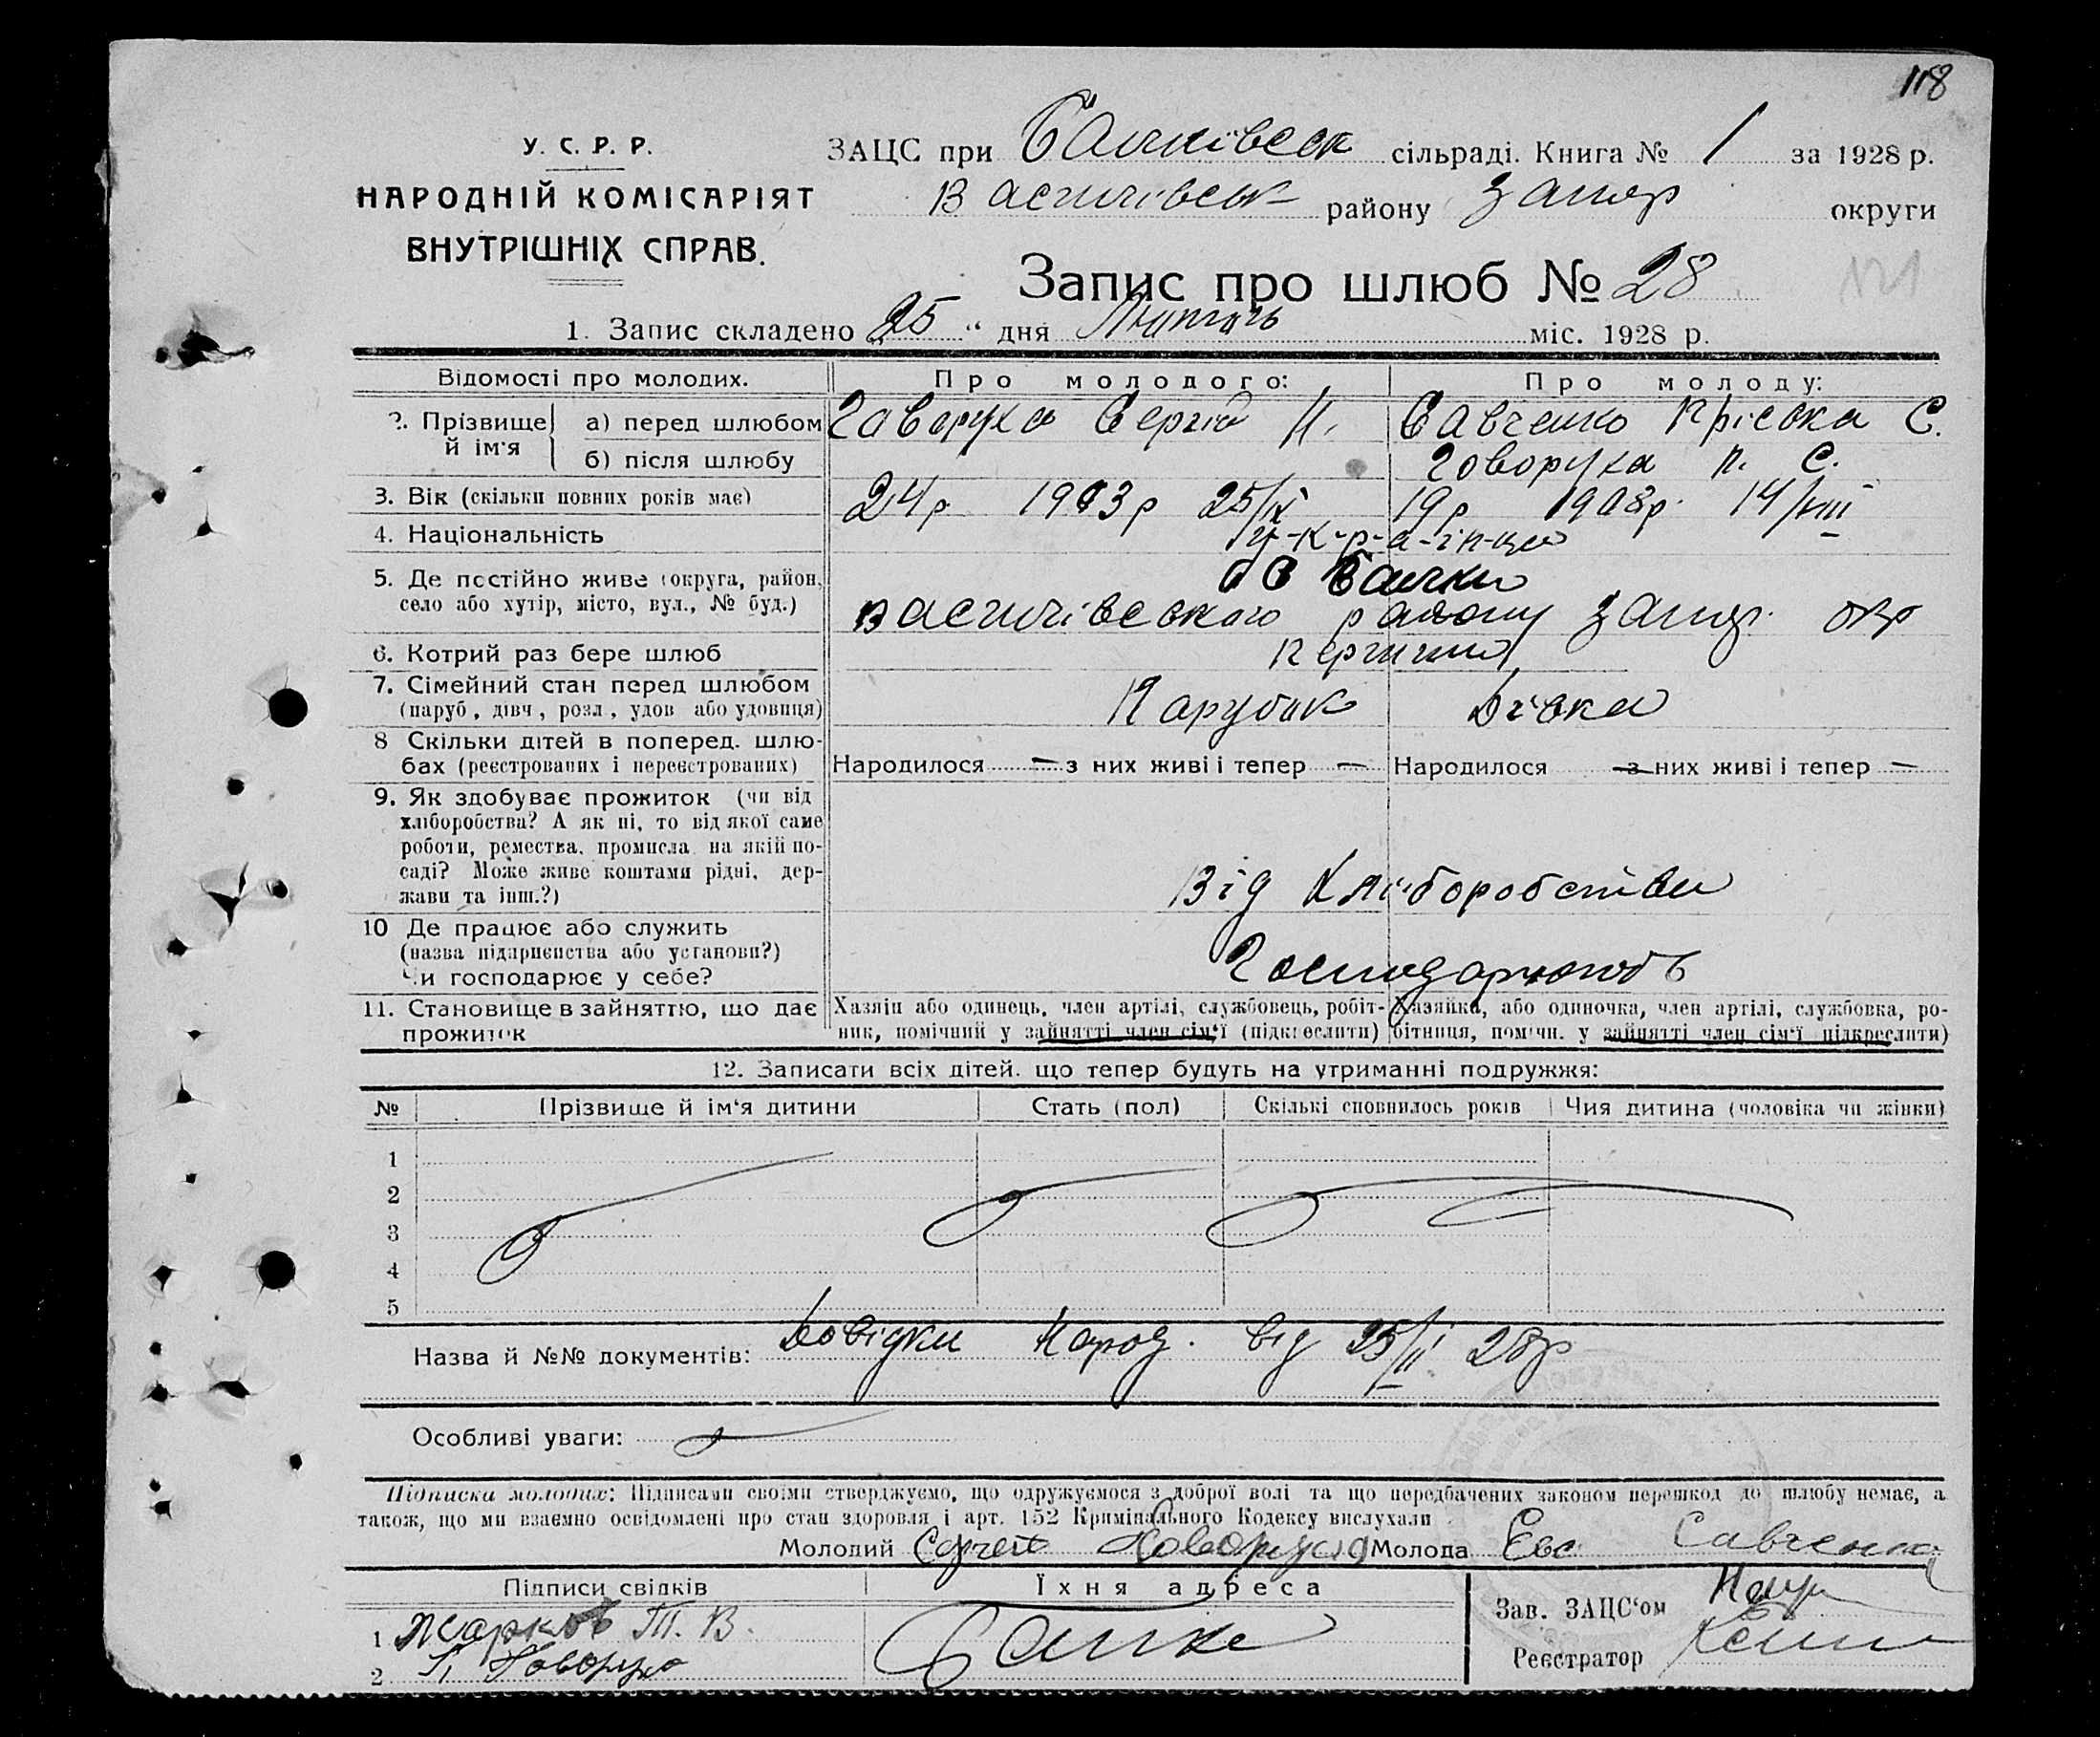 118
У. С. Р. Р.
НАРОДНІЙ КОМІСАРІЯТ
ВНУТРІШНІХ СПРАВ.
ЗАЦС при Балківськ сільраді. Книга № 1 за 1928 р.
Василівськ району Запор округи
Запис про шлюб № 28
1. Запис складено 25 “ дня Лютого міс. 1928 р.
Відомості про молодих.
Про молодого:
Про молоду:
2. Прізвище й ім'я
а) перед шлюбом
Говоруха Сергій
Савченко Пріська С.
б) після шлюбу
Говоруха П. С.
3. Вік (скільки повних років має)
24 р 1903 р 25/IX
19 р 1908 р. 14/VIII
4. Національність
у-к-р-а-їн-ці
5. Де постійно живе (округа, район, село або хутір, місто, вул., № буд.)
Балки
Василівського району Запор. окр
6. Котрий раз бере шлюб
7. Сімейний стан перед шлюбом
(паруб, дівч, розл, удов або удовиця)
Парубок
Дівка
8 Скільки дітей в поперед. шлю-
бах (реєстрованих і нереєстрованих)
Народилося — з них живі і тепер —
Народилося — з них живі і тепер —
9. Як здобуває прожиток (чи від
хліборобства? А як ні, то від якої саме
роботи, ремества, промисла на якій по-
саді? Може живе коштами рідні, дер-
жави та інш.?)
Від хліборобства
10 Де працює або служить
(назва підприєнства або установи?)
Чи господарює у себе?
Господарюють
11. Становище в зайняттю, що дає
прожиток
Хазяїн або одинець, член артілі, службовець, робіт-
ник, помічний у зайнятті член сім'ї (підкреслити)
Хазяйка, або одиночка, член артілі, службовка, ро-
бітниця, помічн. у зайнятті член сім'ї підкреслити)
12. Записати всіх дітей, що тепер будуть на утриманні подружжя:
№
Прізвище й ім'я дитини
Стать (пол)
Скількі сповнилось років
Чия дитина (чоловіка чи жінки)
1
2
3
4
5
Назва й №№ документів: Довідки Народ. від 25/II 28р
Особливі уваги:
Підписка молодих: Підписами своїми стверджуємо, що одружуємося з доброї волі та що передбачених законом перешкод до шлюбу немає, а
також, що ми взаємно освідомлені про стан здоровля і арт. 152 Кримінального Кодексу вислухали
Молодий Сергей Говоруха Молода Савченко
Підписи свідків
Їхня адреса
1 Жарков Т. В.
Балки
2 Говоруха
Зав. ЗАЦС'ом
Реєстратор